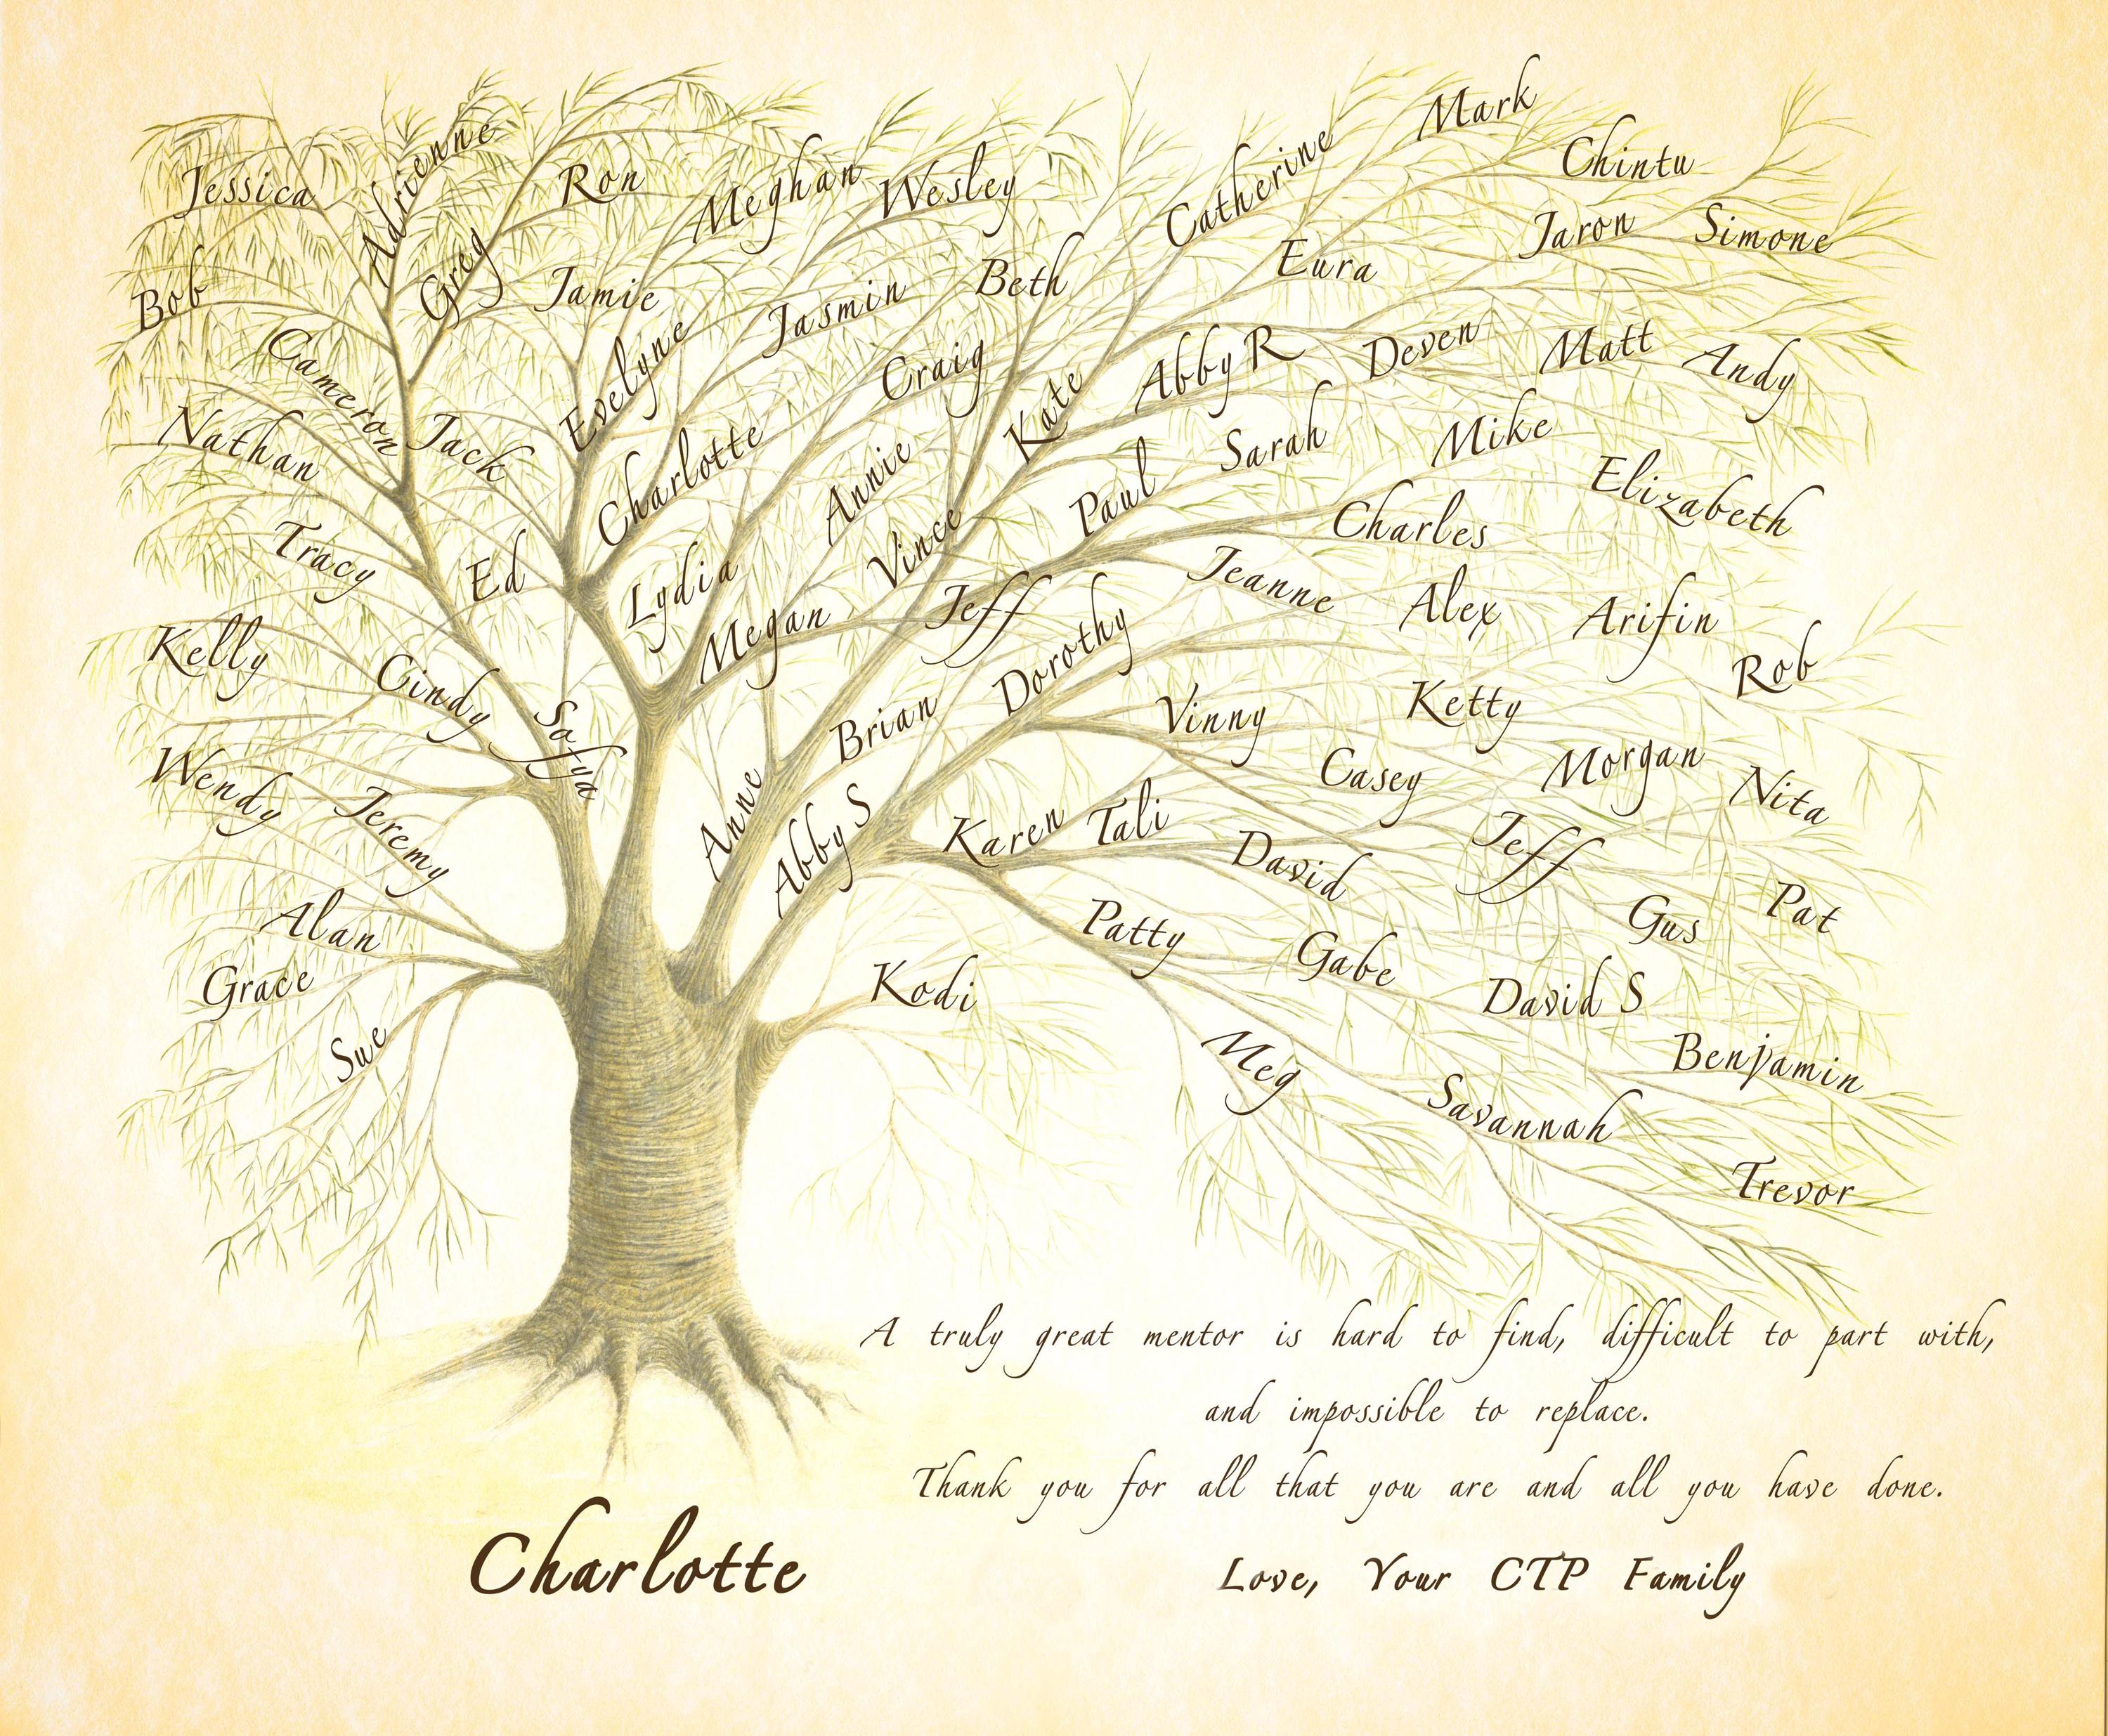 Mark
Adrienne
Jessica
Ron
Meghan
Wesley
Catherine
Chintu
Jaron
Simone
Bob
Greg
Jamie
Jasmin
Beth
Eura
Cameron
Evelyne
Craig
Kate
Abby R
Deven
Matt
Andy
Nathan
Jack
Charlotte
Annie
Paul
Sarah
Mike
Elizabeth
Tracy
Ed
Lydia
Vince
Charles
Jeanne
Kelly
Cindy
Megan
Jeff
Dorothy
Alex
Arifin
Rob
Sofya
Brian
Vinny
Ketty
Wendy
Jeremy
Anne
Abby S
Karen
Tali
Casey
Morgan
Nita
David
Jeff
Alan
Patty
Gus
Pat
Grace
Kodi
Gabe
David S
Sue
Meg
Benjamin
Savannah
Trevor
A truly great mentor is hard to find, difficult to part with,
and impossible to replace.
Thank you for all that you are and all you have done.
Charlotte
Love, Your CTP Family